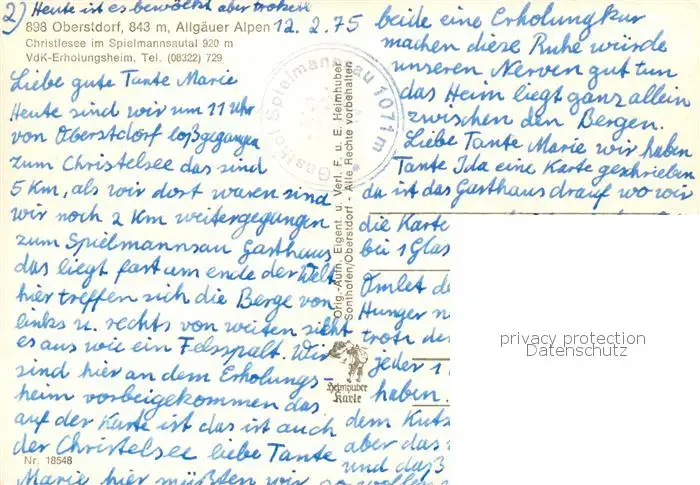 2) Heute ist es bewölkt aber trotzdem
898 Oberstdorf, 843 m, Allgäuer Alpen 12. 2. 75
Christlessee im Spielmannsautal 920 m
VdK-Erholungsheim, Tel. (08322) 729
Liebe gute Tante Marie
Heute sind wir um 11 Uhr
von Oberstdorf loßgegangen
zum Christelsee das sind
5 Km, als wir dort waren sind
wir noch 2 Km weitergegungen
zum Spielmannsau Gasthaus
das liegt fast am ende der Welt
hier treffen sich die Berge von
links u. rechts von weiten sieht
es aus wie ein Felsspalt. Wir
sind hier an dem Erholungs-
heim vorbeigekommen das
auf der Karte ist das ist auch
der Christelsee liebe Tante
Marie hier müßten wir
Nr. 18548
Gasthof Spielmannsau 1071 m
Orig.-Aufn. Eigent. u. Verl. F. u. E. Heimhuber
Sonthofen/Oberstdorf - Alle Rechte vorbehalten
Heimhuber
Karte
beide eine Erholungkur
machen diese Ruhe würde
unseren Nerven gut tun
das Heim liegt ganz allein
zwischen den Bergen.
Liebe Tante Marie wir haben
Tante Ida eine Karte geschrieben
da ist das Gasthaus drauf wo wir
die Karte
bei 1 Glas
Omlet
Hunger
trotz
jeder 1
haben.
dem
aber das
und daß
privacy protection
Datenschutz